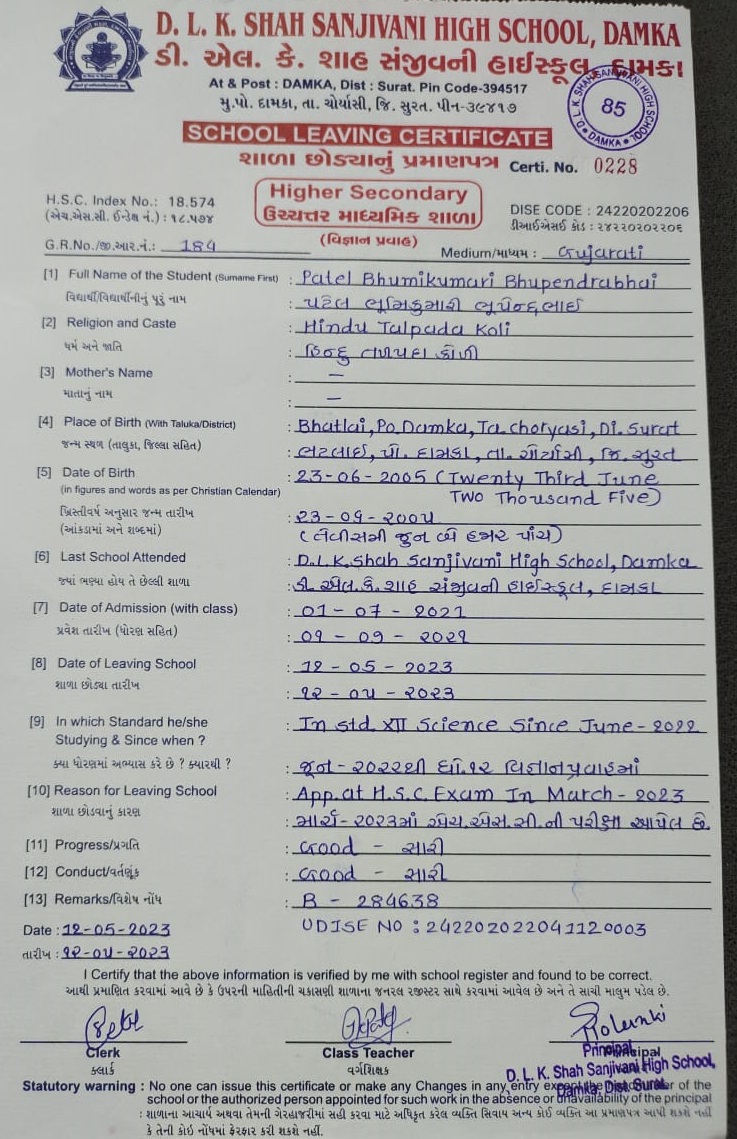 D. L. K. SHAH SANJIVANI HIGH SCHOOL, DAMKA
ડી. એલ. કે. શાહ સંજીવની હાઈસ્કૂલ, દામકા
At & Post : DAMKA, Dist : Surat. Pin Code-394517
મુ.પો. દામકા, તા. ચોર્યાસી, જિ. સુરત. પીન-૩૯૪૫૧૭
D. L. K. SHAH SANJIVANI HIGH SCHOOL
85
DAMKA
SCHOOL LEAVING CERTIFICATE
શાળા છોડ્યાનું પ્રમાણપત્ર Certi. No. 0228
H.S.C. Index No.: 18.574
(એચ.એસ.સી. ઈન્ડેક્ષ નં.) : ૧૮.૫૭૪
Higher Secondary
ઉચ્ચત્તર માધ્યમિક શાળા
(વિજ્ઞાન પ્રવાહ)
DISE CODE : 24220202206
ડીઆઈએસઈ કોડ : ૨૪૨૨૦૨૦૨૨૦૬
G.R.No./જી.આર.નં.: 184 Medium/માધ્યમ : Gujarati
[1] Full Name of the Student (Surname First) : Patel Bhumikumari Bhupendrabhai
વિદ્યાર્થી/વિદ્યાર્થીનીનું પૂરૂં નામ : પટેલ ભૂમિકુમારી ભૂપેન્દ્રભાઈ
[2] Religion and Caste : Hindu Talpada Koli
ધર્મ અને જાતિ : હિન્દુ તળપદા કોળી
[3] Mother's Name : —
માતાનું નામ : —
[4] Place of Birth (With Taluka/District) : Bhatlai, Po. Damka, Ta. choryasi, Di. Surat
જન્મ સ્થળ (તાલુકા, જિલ્લા સહિત) : ભટલાઈ, પો. દામકા, તા. ચોર્યાસી, જિ. સુરત
[5] Date of Birth : 23-06-2005 (Twenty Third June
(in figures and words as per Christian Calendar) Two Thousand Five)
ખ્રિસ્તીવર્ષ અનુસાર જન્મ તારીખ : ૨૩-૦૬-૨૦૦૫
(આંકડામાં અને શબ્દમાં) (ત્રેવીસમી જુન બે હજાર પાંચ)
[6] Last School Attended : D.L.K. Shah Sanjivani High School, Damka
જ્યાં ભણ્યા હોય તે છેલ્લી શાળા : ડી. એલ. કે. શાહ સંજીવની હાઈસ્કૂલ, દામકા
[7] Date of Admission (with class) : 01-07-2021
પ્રવેશ તારીખ (ધોરણ સહિત) : ૦૧-૦૭-૨૦૨૧
[8] Date of Leaving School : 12-05-2023
શાળા છોડ્યા તારીખ : ૧૨-૦૫-૨૦૨૩
[9] In which Standard he/she : In std XII Science Since June-2022
Studying & Since when ?
ક્યા ધોરણમાં અભ્યાસ કરે છે ? ક્યારથી ? : જૂન-૨૦૨૨થી ધો.૧૨ વિજ્ઞાનપ્રવાહમાં
[10] Reason for Leaving School : App. at H.S.C. Exam In March-2023
શાળા છોડવાનું કારણ : માર્ચ-૨૦૨૩માં એચ.એસ.સી.ની પરીક્ષા આપેલ છે.
[11] Progress/પ્રગતિ : Good - સારી
[12] Conduct/વર્તણૂંક : Good - સારી
[13] Remarks/વિશેષ નોંધ : B - 284638
Date : 12-05-2023 UDISE NO : 242202022041120003
તારીખ : ૧૨-૦૫-૨૦૨૩
I Certify that the above information is verified by me with school register and found to be correct.
આથી પ્રમાણિત કરવામાં આવે છે કે ઉપરની માહિતીની ચકાસણી શાળાના જનરલ રજીસ્ટર સાથે કરવામાં આવેલ છે અને તે સાચી માલુમ પડેલ છે.
Clerk Class Teacher Principal
ક્લાર્ક વર્ગશિક્ષક
Principal
D. L. K. Shah Sanjivani High School,
Damka, Dist. Surat.
Statutory warning : No one can issue this certificate or make any Changes in any entry of the
school or the authorized person appointed for such work in the absence or unavailability of the principal
: શાળાના આચાર્ય અથવા તેમની ગેરહાજરીમાં સહી કરવા માટે અધિકૃત કરેલ વ્યક્તિ સિવાય અન્ય કોઈ વ્યક્તિ આ પ્રમાણપત્ર આપી શકશે નહીં
કે તેની કોઈ નોંધમાં ફેરફાર કરી શકશે નહીં.